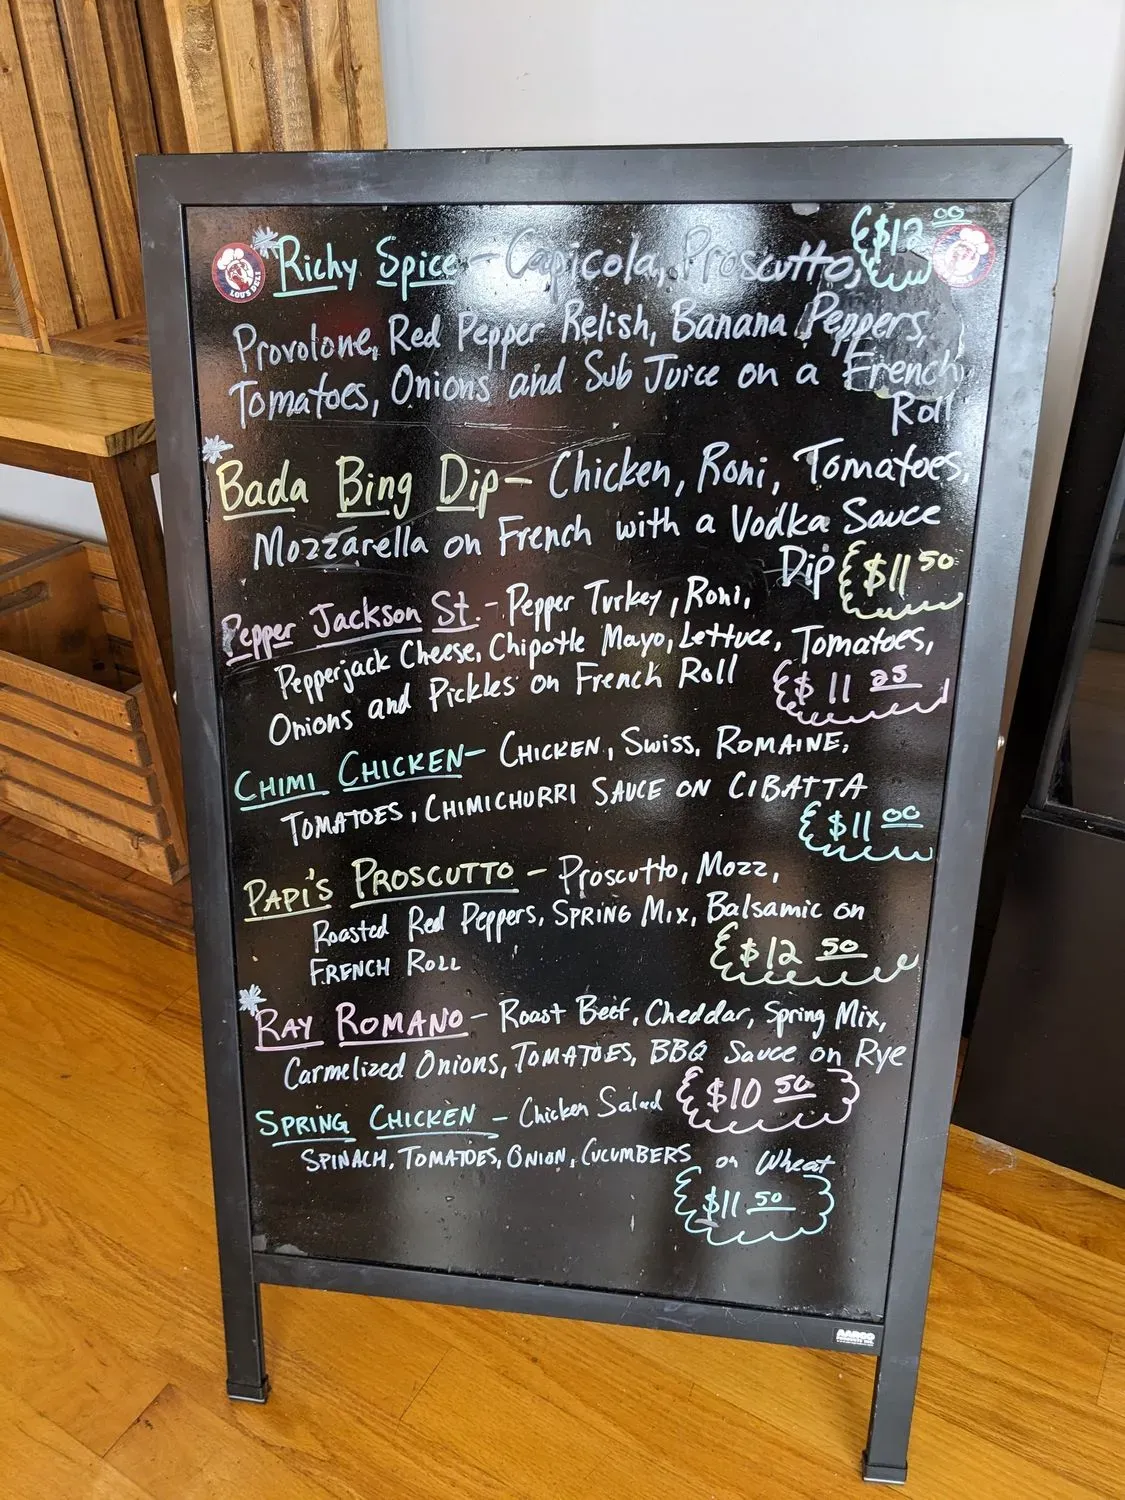 Richy Spice - Capicola, Proscutto, $12 00
LOU'S DELI
Provolone, Red Pepper Relish, Banana Peppers,
Tomatoes, Onions and Sub Juice on a French
Roll
Bada Bing Dip - Chicken, Roni, Tomatoes,
Mozzarella on French with a Vodka Sauce
Dip $11 50
Pepper Jackson St. - Pepper Turkey, Roni,
Pepperjack Cheese, Chipotle Mayo, Lettuce, Tomatoes,
Onions and Pickles on French Roll $11 25
CHIMI CHICKEN - CHICKEN, SWISS, ROMAINE,
TOMATOES, CHIMICHURRI SAUCE ON CIBATTA
$11 00
PAPI'S PROSCUTTO - Proscutto, Mozz,
Roasted Red Peppers, SPRING MIX, Balsamic on
FRENCH ROLL $12 50
RAY ROMANO - Roast Beef, Cheddar, Spring Mix,
Carmelized Onions, TOMATOES, BBQ Sauce on Rye
$10 50
SPRING CHICKEN - Chicken Salad
SPINACH, TOMATOES, ONION, CUCUMBERS on Wheat
$11 50
AARCO